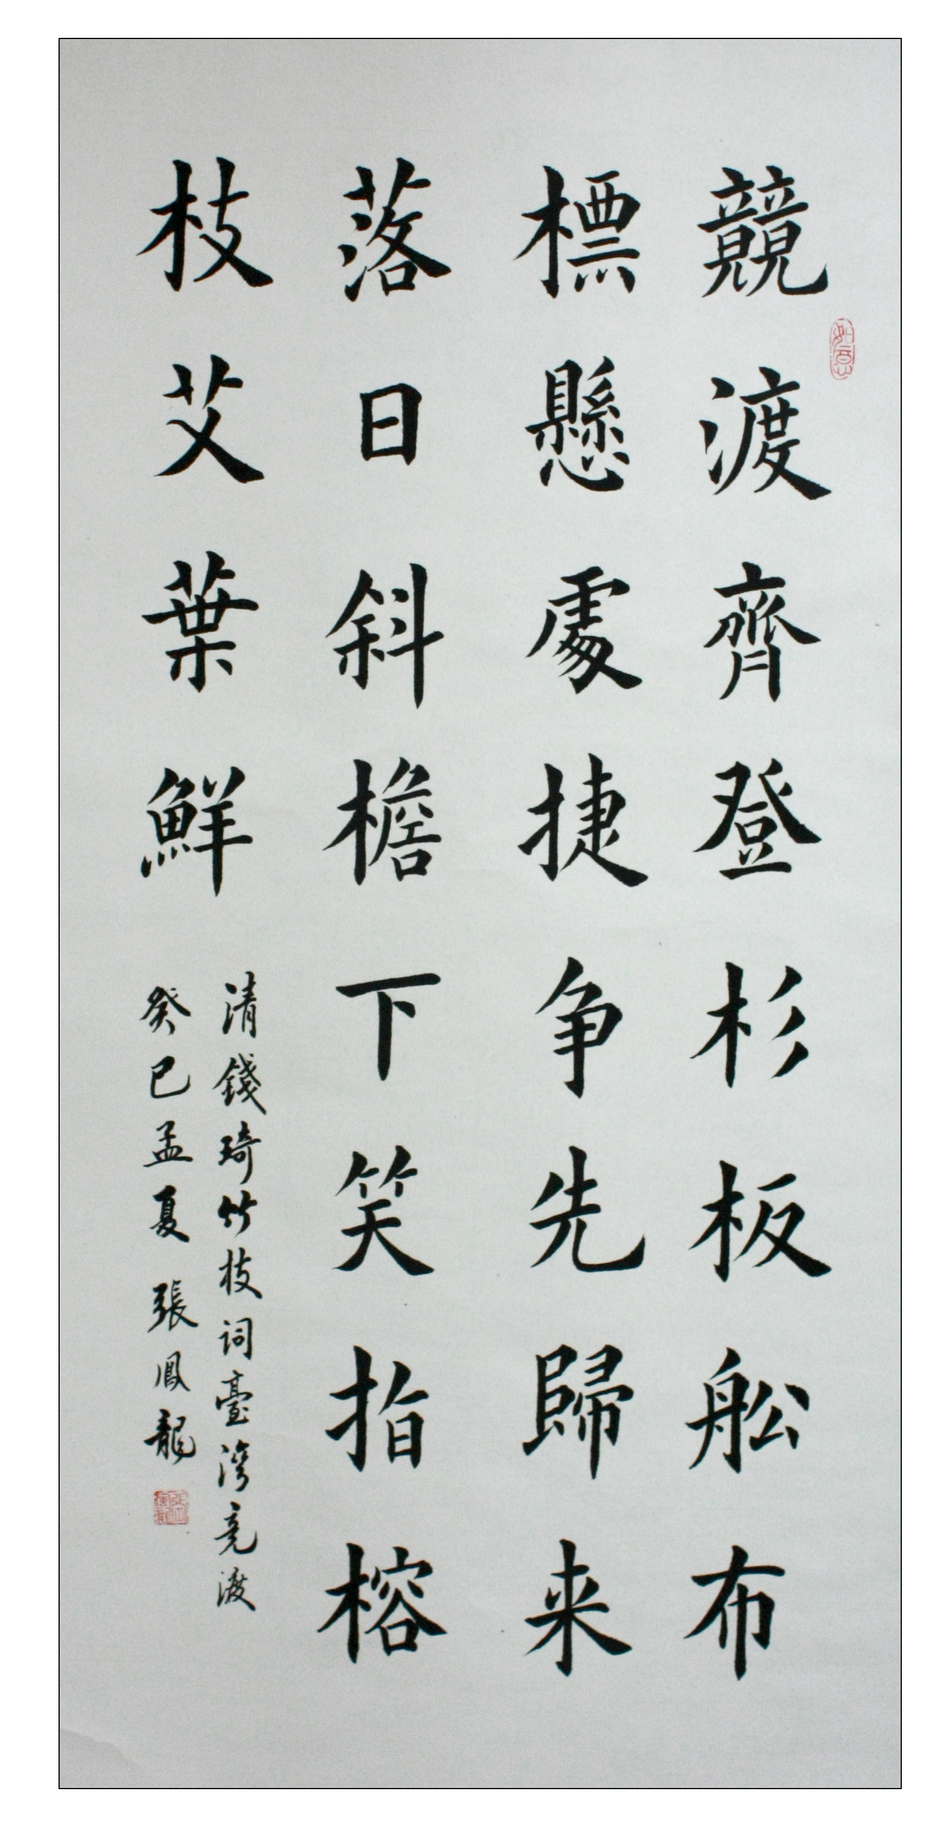 競渡齊登杉板舩布
標懸處捷争先歸来
落日斜檐下笑指榕
枝艾葉鮮
清錢琦竹枝词臺灣竞渡
癸巳孟夏 張鳳龍
如意